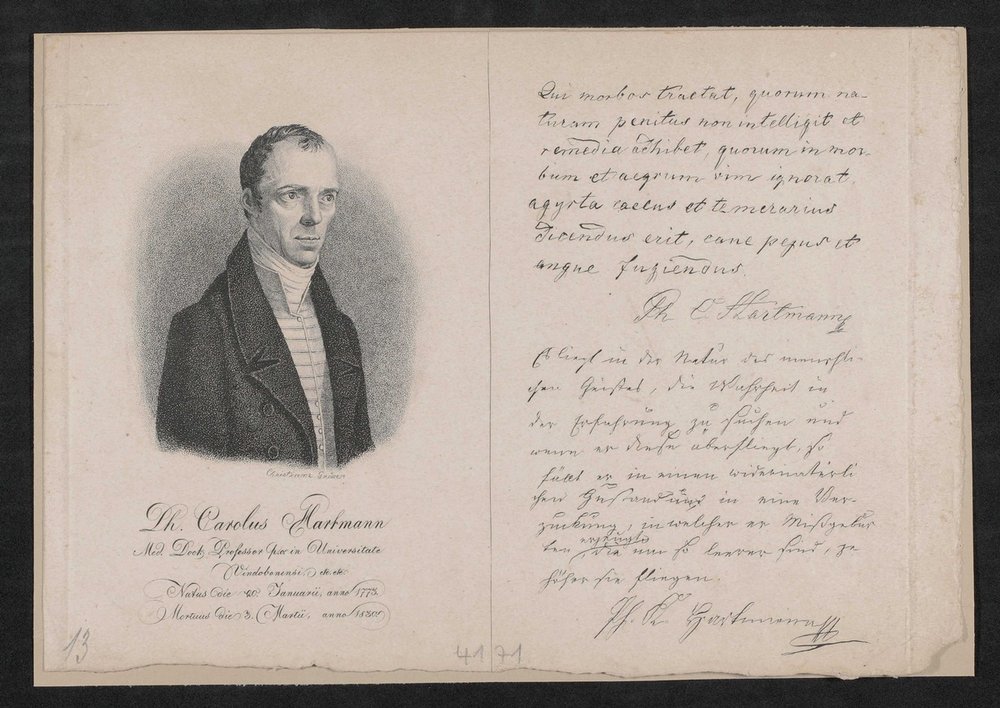 Ph. Carolus Hartmann
Med. Doct. Professor in Universitate
Vindobonensi, etc. etc.
Natus die 20 Januarii, anno 1773.
Mortuus die 3. Martii, anno 1830.
13
4171
Qui morbos tractat, quorum na-
turam penitus non intelligit et
remedia adhibet, quorum in mor-
bum et aegrum vim ignorat,
agyrta caecus et temerarius
dicendus erit, cane pejus et
angue fugiendus.
Ph C Hartmann
Es liegt in der Natur des menschli-
chen Geistes, die Wahrheit in
der Erfahrung zu suchen und
wenn er diese überfliegt, so
fällt er in einen widernatürli
chen Zustand und in eine Ver-
zuckung, in welcher er Mißgebur
ten erzeugt, die um so leerer sind, je
höher sie fliegen.
Ph. K. Hartmann